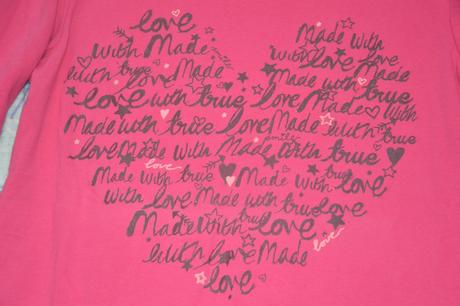 love
with Made Made with
with true Made love love
love Made with true
love with true love Made with
Made with true love Made with true
love Made with Made with true
love
Made with true Made with
with love Made with true love
Made with true love love
with love Made
love